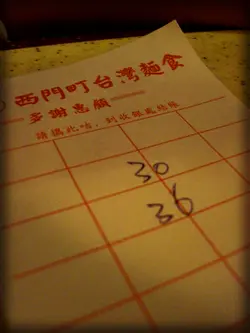 西門町台灣麵食
多謝惠顧
請攜此咭，到收銀處結帳
30
36